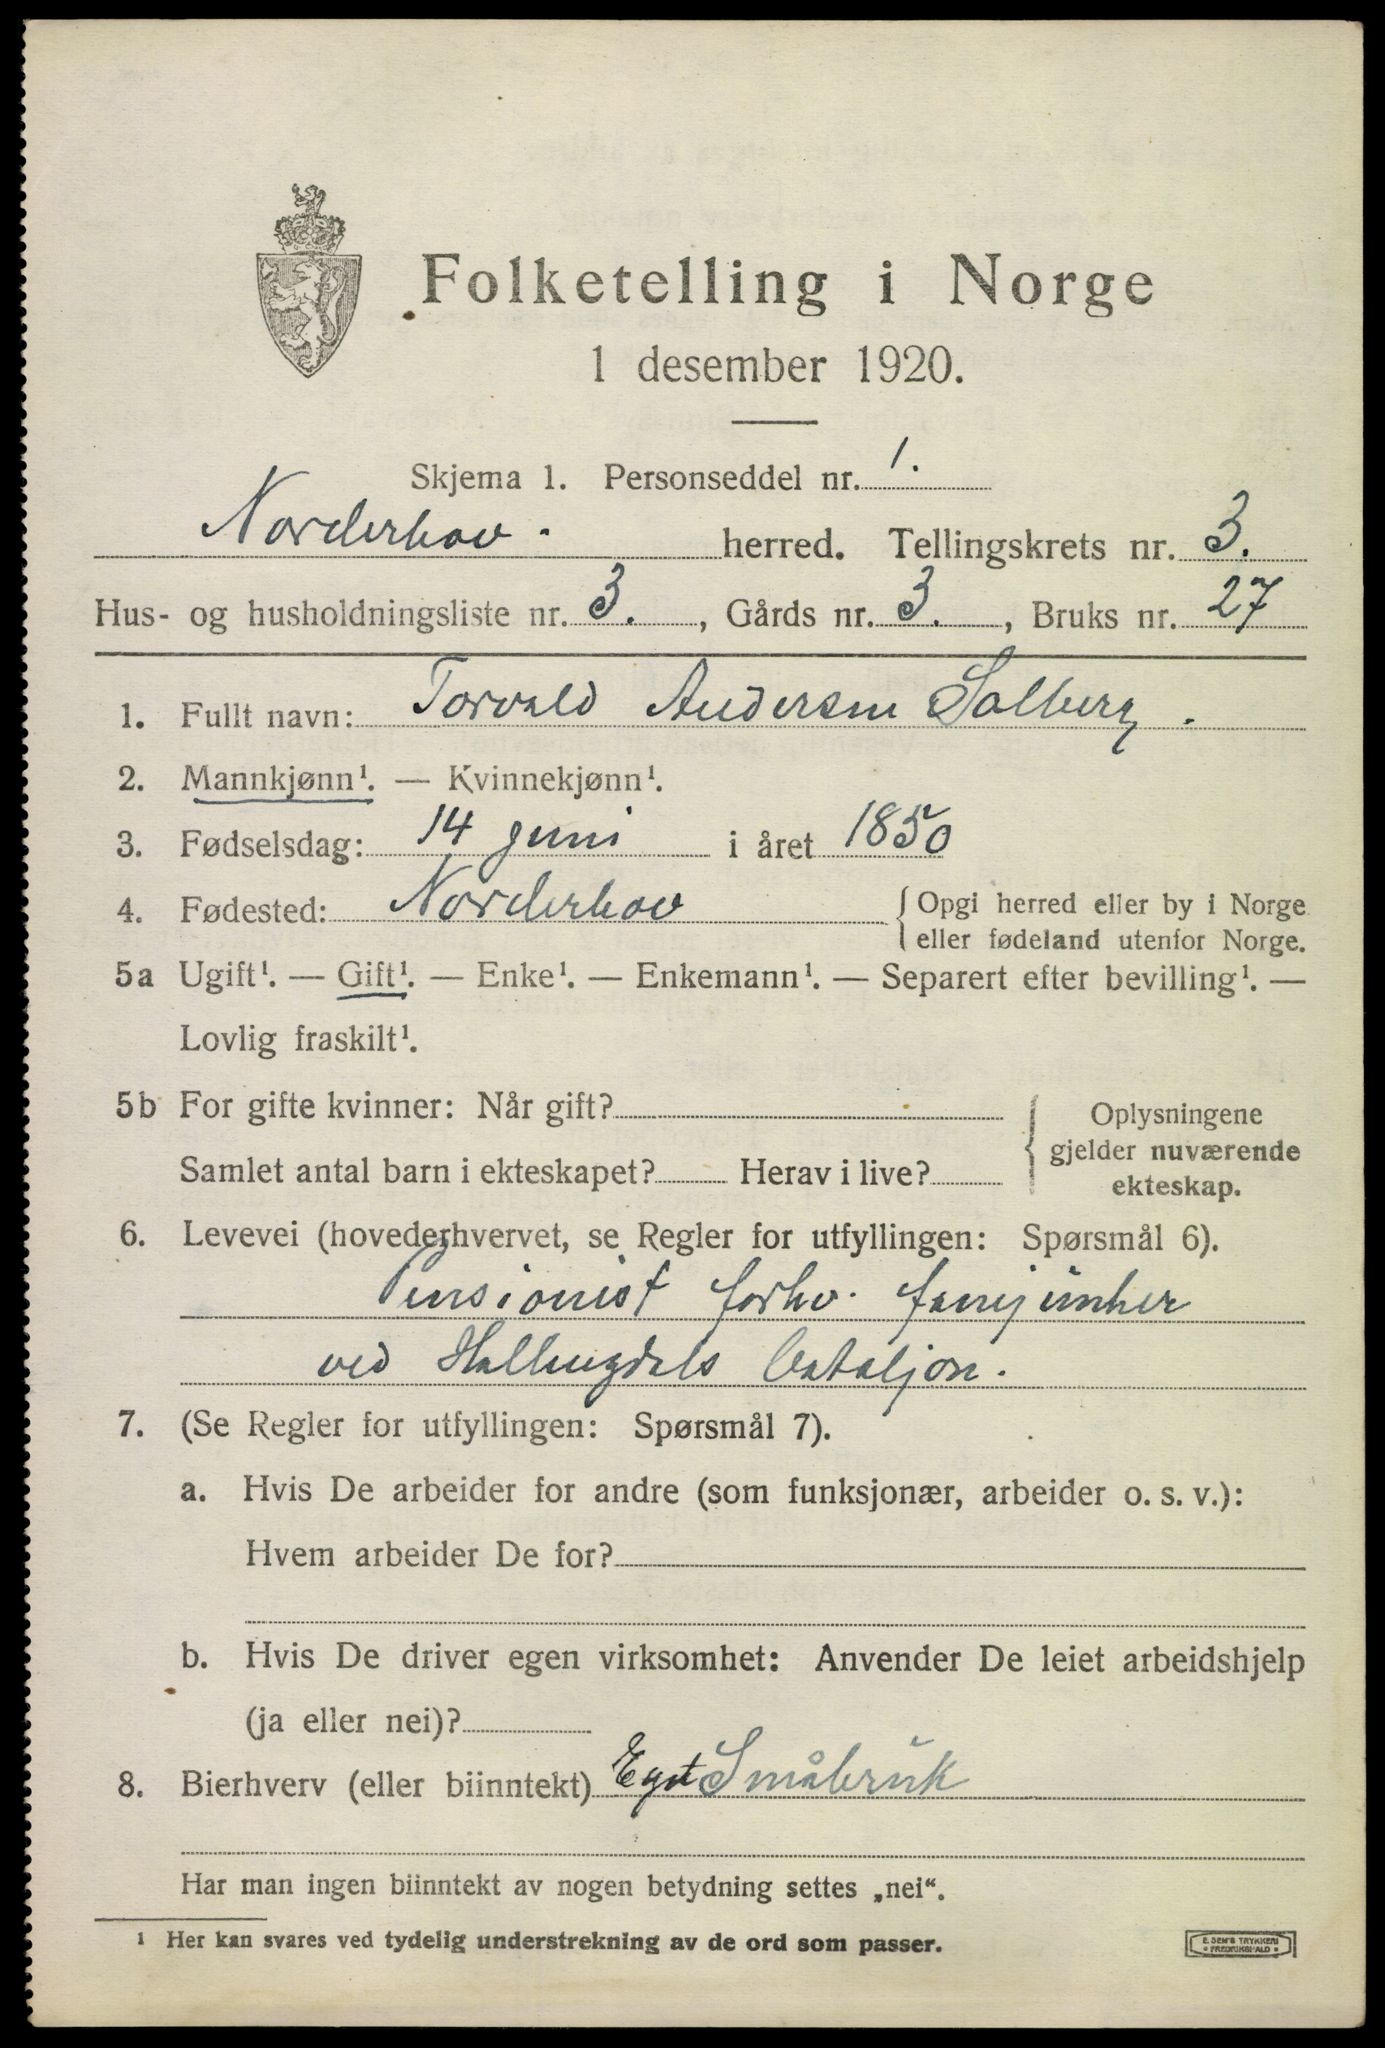 Folketelling i Norge
1 desember 1920.
Skjema 1. Personseddel nr. 1.
Norderhov. herred. Tellingskrets nr. 3.
Hus- og husholdningsliste nr. 3., Gårds nr. 3., Bruks nr. 27
1. Fullt navn: Torvald Andersen Solberg.
2. Mannkjønn¹. — Kvinnekjønn¹.
3. Fødselsdag: 14 juni i året 1850
4. Fødested: Norderhov { Opgi herred eller by i Norge
eller fødeland utenfor Norge.
5a Ugift¹. — Gift¹. — Enke¹. — Enkemann¹. — Separert efter bevilling¹. —
Lovlig fraskilt¹.
5b For gifte kvinner: Når gift?
Samlet antal barn i ekteskapet? Herav i live?
{ Oplysningene
gjelder nuværende
ekteskap.
6. Levevei (hovederhvervet, se Regler for utfyllingen: Spørsmål 6).
Pensionist forhv. fanejunker
ved Hallingdals bataljon.
7. (Se Regler for utfyllingen: Spørsmål 7).
a. Hvis De arbeider for andre (som funksjonær, arbeider o. s. v.):
Hvem arbeider De for?
b. Hvis De driver egen virksomhet: Anvender De leiet arbeidshjelp
(ja eller nei)?
8. Bierhverv (eller biinntekt) Eget Småbruk
Har man ingen biinntekt av nogen betydning settes „nei“.
¹ Her kan svares ved tydelig understrekning av de ord som passer.
E. SEM'S TRYKKERI
• FREDRIKSHALD •